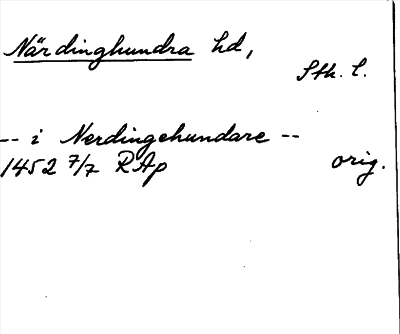 Närdinghundra hd,
Sth. l.
-- i Nerdingehundare --
1452 7/7 RAp orig.